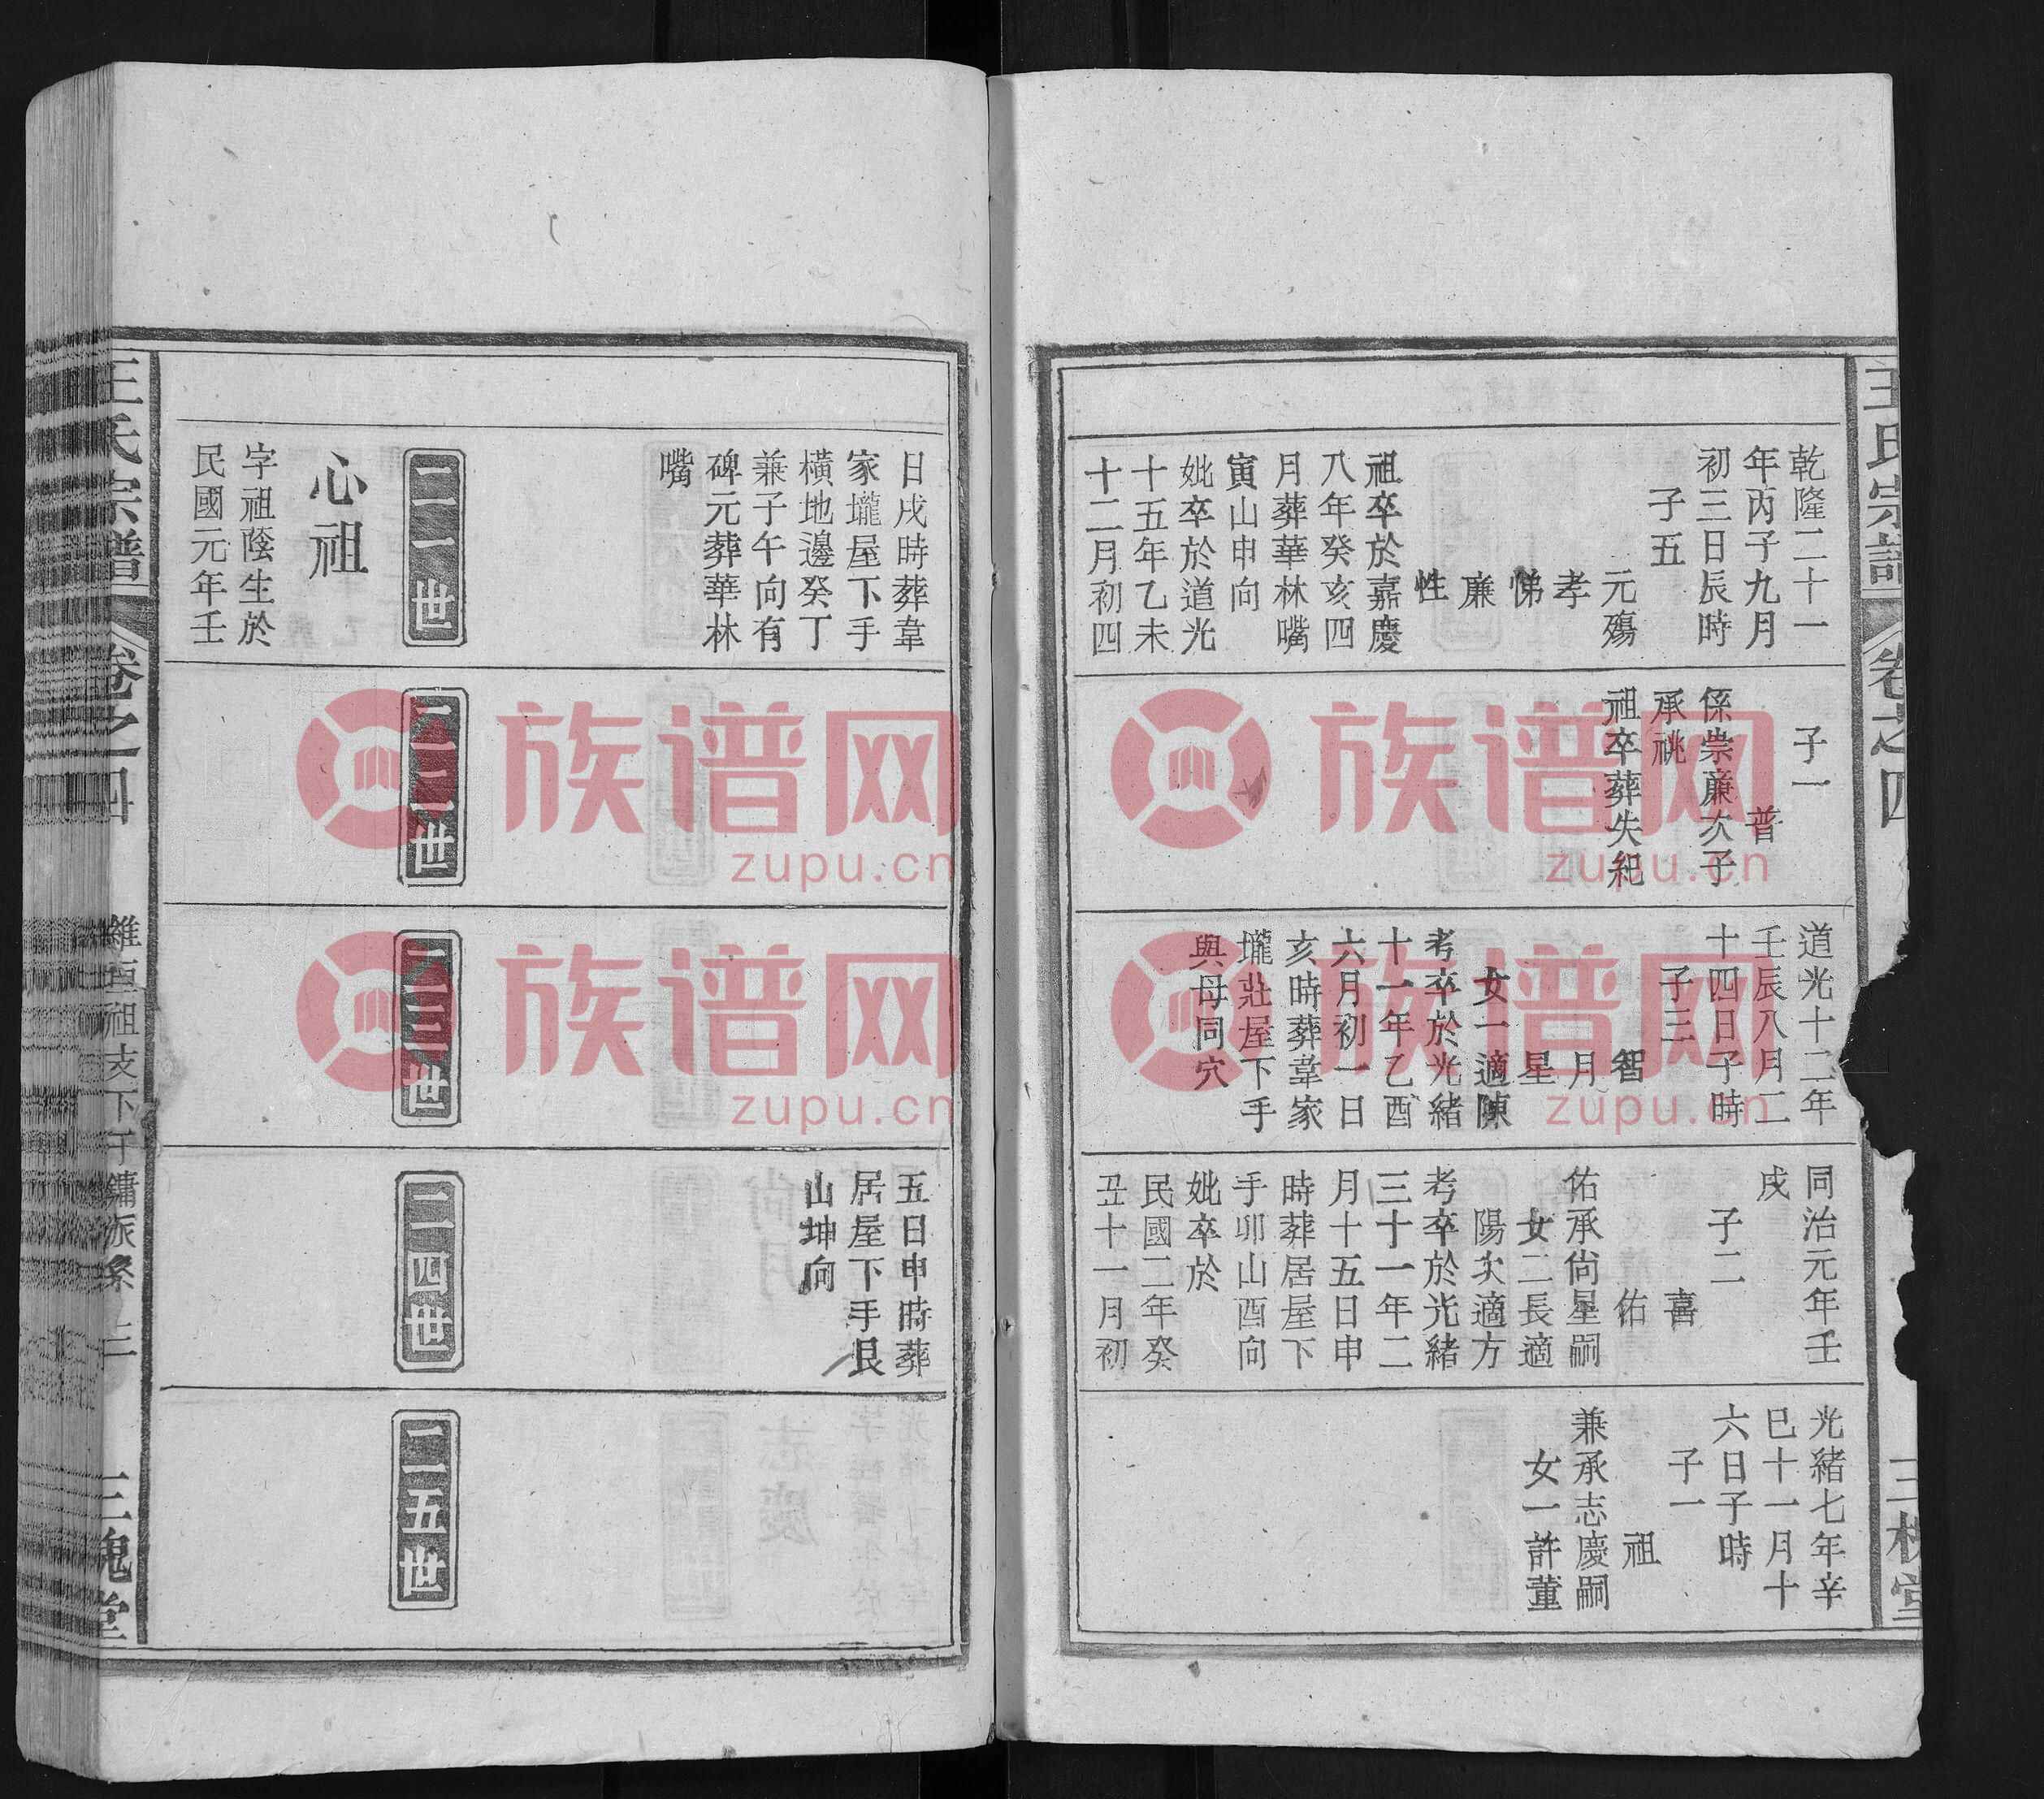 王氏宗譜
卷之四
三槐堂
乾隆二十一
年丙子九月
初三日辰時
子五
元殤
孝
悌
廉
性
祖卒於嘉慶
八年癸亥四
月葬華林嘴
寅山申向
妣卒於道光
十五年乙未
十二月初四
子一
普
係崇廉次子
承祧
祖卒葬失紀
道光十二年
壬辰八月二
十四日子時
子三
智
月
星
女一適陳
考卒於光緒
十一年乙酉
六月初一日
亥時葬韋家
壠壯屋下手
與母同穴
同治元年壬
戌
子二
喜
佑
佑承尙星嗣
女二長適
陽次適方
考卒於光緒
三十一年二
月十五日申
時葬居屋下
手卯山酉向
妣卒於
民國二年癸
丑十一月初
光緒七年辛
巳十一月十
六日子時
子一
祖
兼承志慶嗣
女一許董
日戌時葬韋
家壠屋下手
橫地邊癸丁
兼子午向有
碑元葬華林
嘴
二一世
心祖
字祖蔭生於
民國元年壬
二二世
二三世
五日申時葬
居屋下手艮
山坤向
二四世
二五世
王氏宗譜
卷之四
祖支下子鏞派系
三槐堂
族谱网
zupu.cn
族谱网
zupu.cn
族谱网
zupu.cn
族谱网
zupu.cn